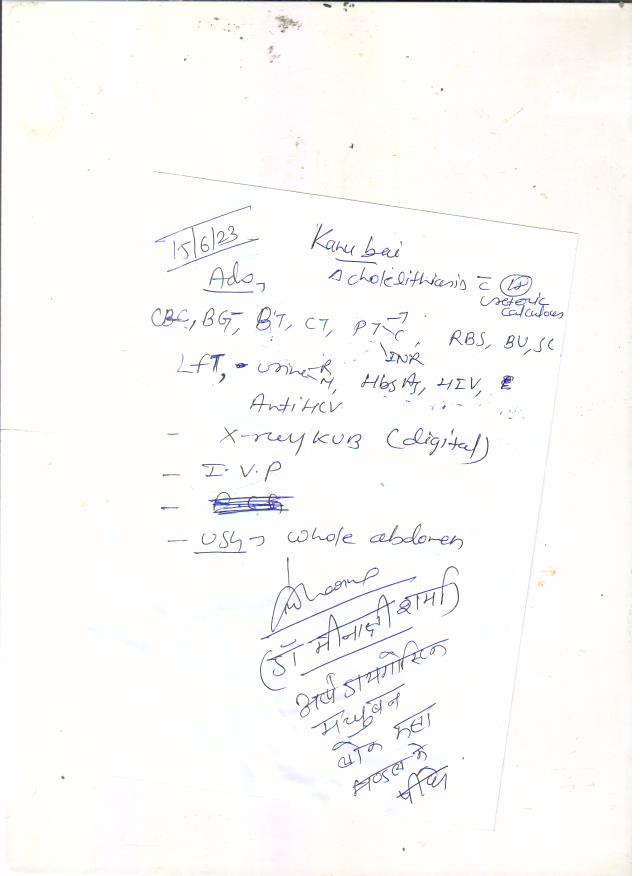 15/6/23
Kanu bai
Adv,
Δ cholelithiasis c̄ (Lt)
ureteric
calculous
CBC, BGT, BT, CT, PT C, RBS, BU, SC
INR
LFT, urine R
M, HbsAg, HIV,
Anti HCV
- X-ray KUB (digital)
- I.V.P
- USG → whole abdomen
(डॉ मीनाक्षी शर्मा)
डायग्नोस्टिक
मधुबन
के
पीछे